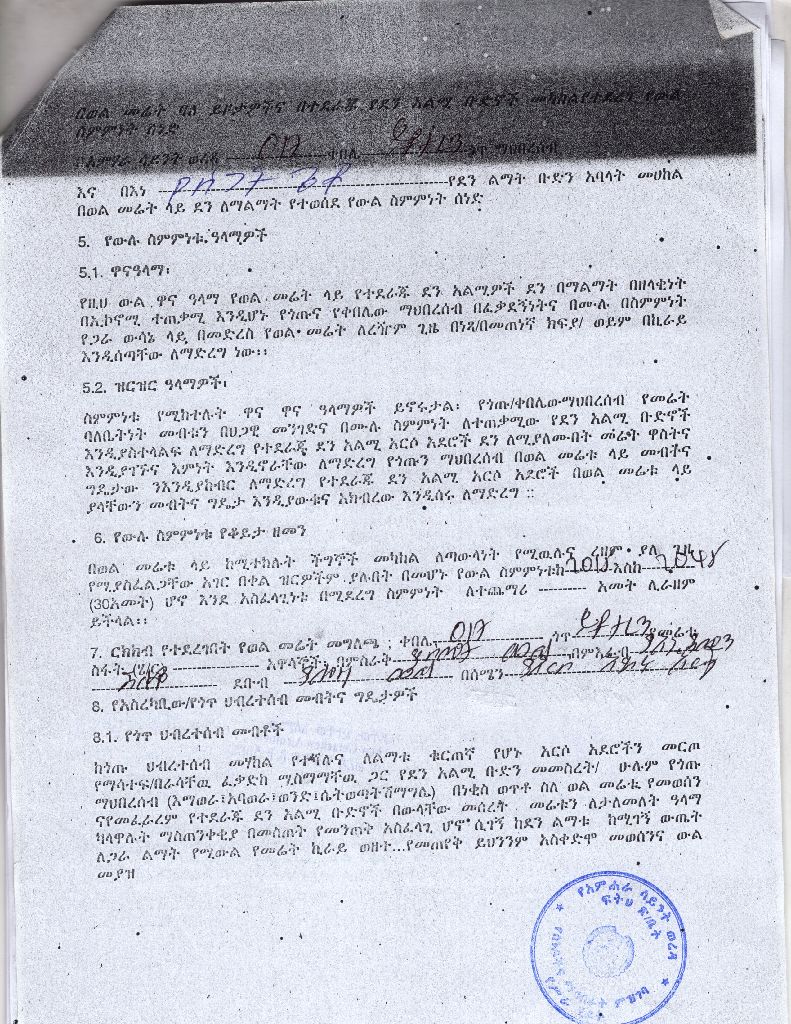 በወል መሬት ባለ ይዞታዎችና በተደራጁ የደን አልሚ ቡድኖች መካከል የተደረገ የውል
ስምምነት ሰነድ
በአምሃራ ሳይንት ወረዳ ቀበሌ ጎጥ ማህበረሰብ
እና በእነ የደን ልማት ቡድን አባላት መሀከል
በወል መሬት ላይ ደን ለማልማት የተወሰደ የውል ስምምነት ሰነድ
5. የውሉ ስምምነቱ ዓላማዎች
5.1. ዋናዓላማ፡
የዚህ ውል ዋና ዓላማ የወል መሬት ላይ የተደራጁ ደን አልሚዎች ደን በማልማት በዘላቂነት
በኢኮኖሚ ተጠቃሚ እንዲሆኑ የጎጡና የቀበሌው ማህበረሰብ በፈቃደኝነትና በሙሉ በስምምነት
የጋራ ውሳኔ ላይ በመድረስ የወል መሬት ለረዥም ጊዜ በነጻ/በመጠነኛ ክፍያ/ ወይም በኪራይ
እንዲሰጣቸው ለማድረግ ነው፡፡
5.2. ዝርዝር ዓላማዎች፡
ስምምነቱ የሚከተሉት ዋና ዋና ዓላማዎች ይኖሩታል፡ የጎጡ/ቀበሌው ማህበረሰብ የመሬት
ባለቤትነት መብቱን በህጋዊ መንገድና በሙሉ ስምምነት ለተጠቃሚው የደን አልሚ ቡድኖች
እንዲያስተላልፍ ለማድረግ የተደራጁ ደን አልሚ አርሶ አደሮች ደን ለሚያለሙበት መሬት ዋስትና
እንዲያገኙና እምነት እንዲኖራቸው ለማድረግ የጎጡን ማህበረሰብ በወል መሬቱ ላይ መብትና
ግዴታው ንእንዲያከብር ለማድረግ የተደራጁ ደን አልሚ አርሶ አደሮች በወል መሬቱ ላይ
ያላቸውን መብትና ግዴታ እንዲያውቁና አክብረው እንዲሰሩ ለማድረግ ::
6. የውሉ ስምምነቱ የቆይታ ዘመን
በወል መሬቱ ላይ ከሚተከሉት ችግኞች መካከል ለጣውላነት የሚዉሉና ረዘም ያለ ጊዜ
የሚያስፈልጋቸው አገር በቀል ዝርዎችም ያሉበት በመሆኑ የውል ስምምነቱከ 2018 እስከ 2048
(30አመት) ሆኖ እንደ አስፈላጊነቱ በሚደረግ ስምምነት ለተጨማሪ ---------- አመት ሊራዘም
ይችላል፡፡
7. ርክክብ የተደረገበት የወል መሬት መግለጫ ; ቀበሌ ጎጥ የመሬቱ
ስፋት (ሄ)ር ---------------- አዋሳኞች፣ በምስራቅ በምእራብ
ደቡብ በሰሜን
8. የአስረካቢው/የጎጥ ህብረተሰብ መብትና ግዴታዎች
8.1. የጎጥ ህብረተሰብ መብቶች
ከጎጡ ህብረተሰብ መሃከል የተሻሉና ለልማቱ ቁርጠኛ የሆኑ አርሶ አደሮችን መርጦ
የማሳተፍ/በራሳቸዉ ፈቃድከ ሚስማማቸዉ ጋር የደን አልሚ ቡድን መመስረት/ ሁሉም የጎጡ
ማህበረሰብ (እማወራ፣አባወራ፣ወንድ፣ሴትወጣትሽማግሌ) በነቂስ ወጥቶ ስለ ወል መሬቱ የመወሰን
ናየመፈራረም የተደራጁ ደን አልሚ ቡድኖች በውላቸው መሰረት መሬቱን ለታለመለት ዓላማ
ካላዋሉት ማስጠንቀቂያ በመስጠት የመንጠቅ አስፈላጊ ሆኖ ሲገኝ ከደን ልማቱ ከሚገኝ ውጤት
ለጋራ ልማት የሚውል የመሬት ኪራይ ወዘተ...የመጠየቅ ይህንንም አስቀድሞ መወሰንና ውል
መያዝ
የአምሐራ ሳይንት ወረዳ
ፍትህ ጽ/ቤት